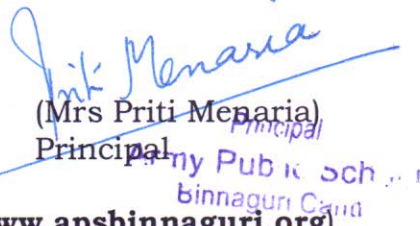 Priti Menaria
(Mrs Priti Menaria)
Principal
Principal
Army Public Sch
Binnaguri Cantt
ww.apsbinnaguri.org)